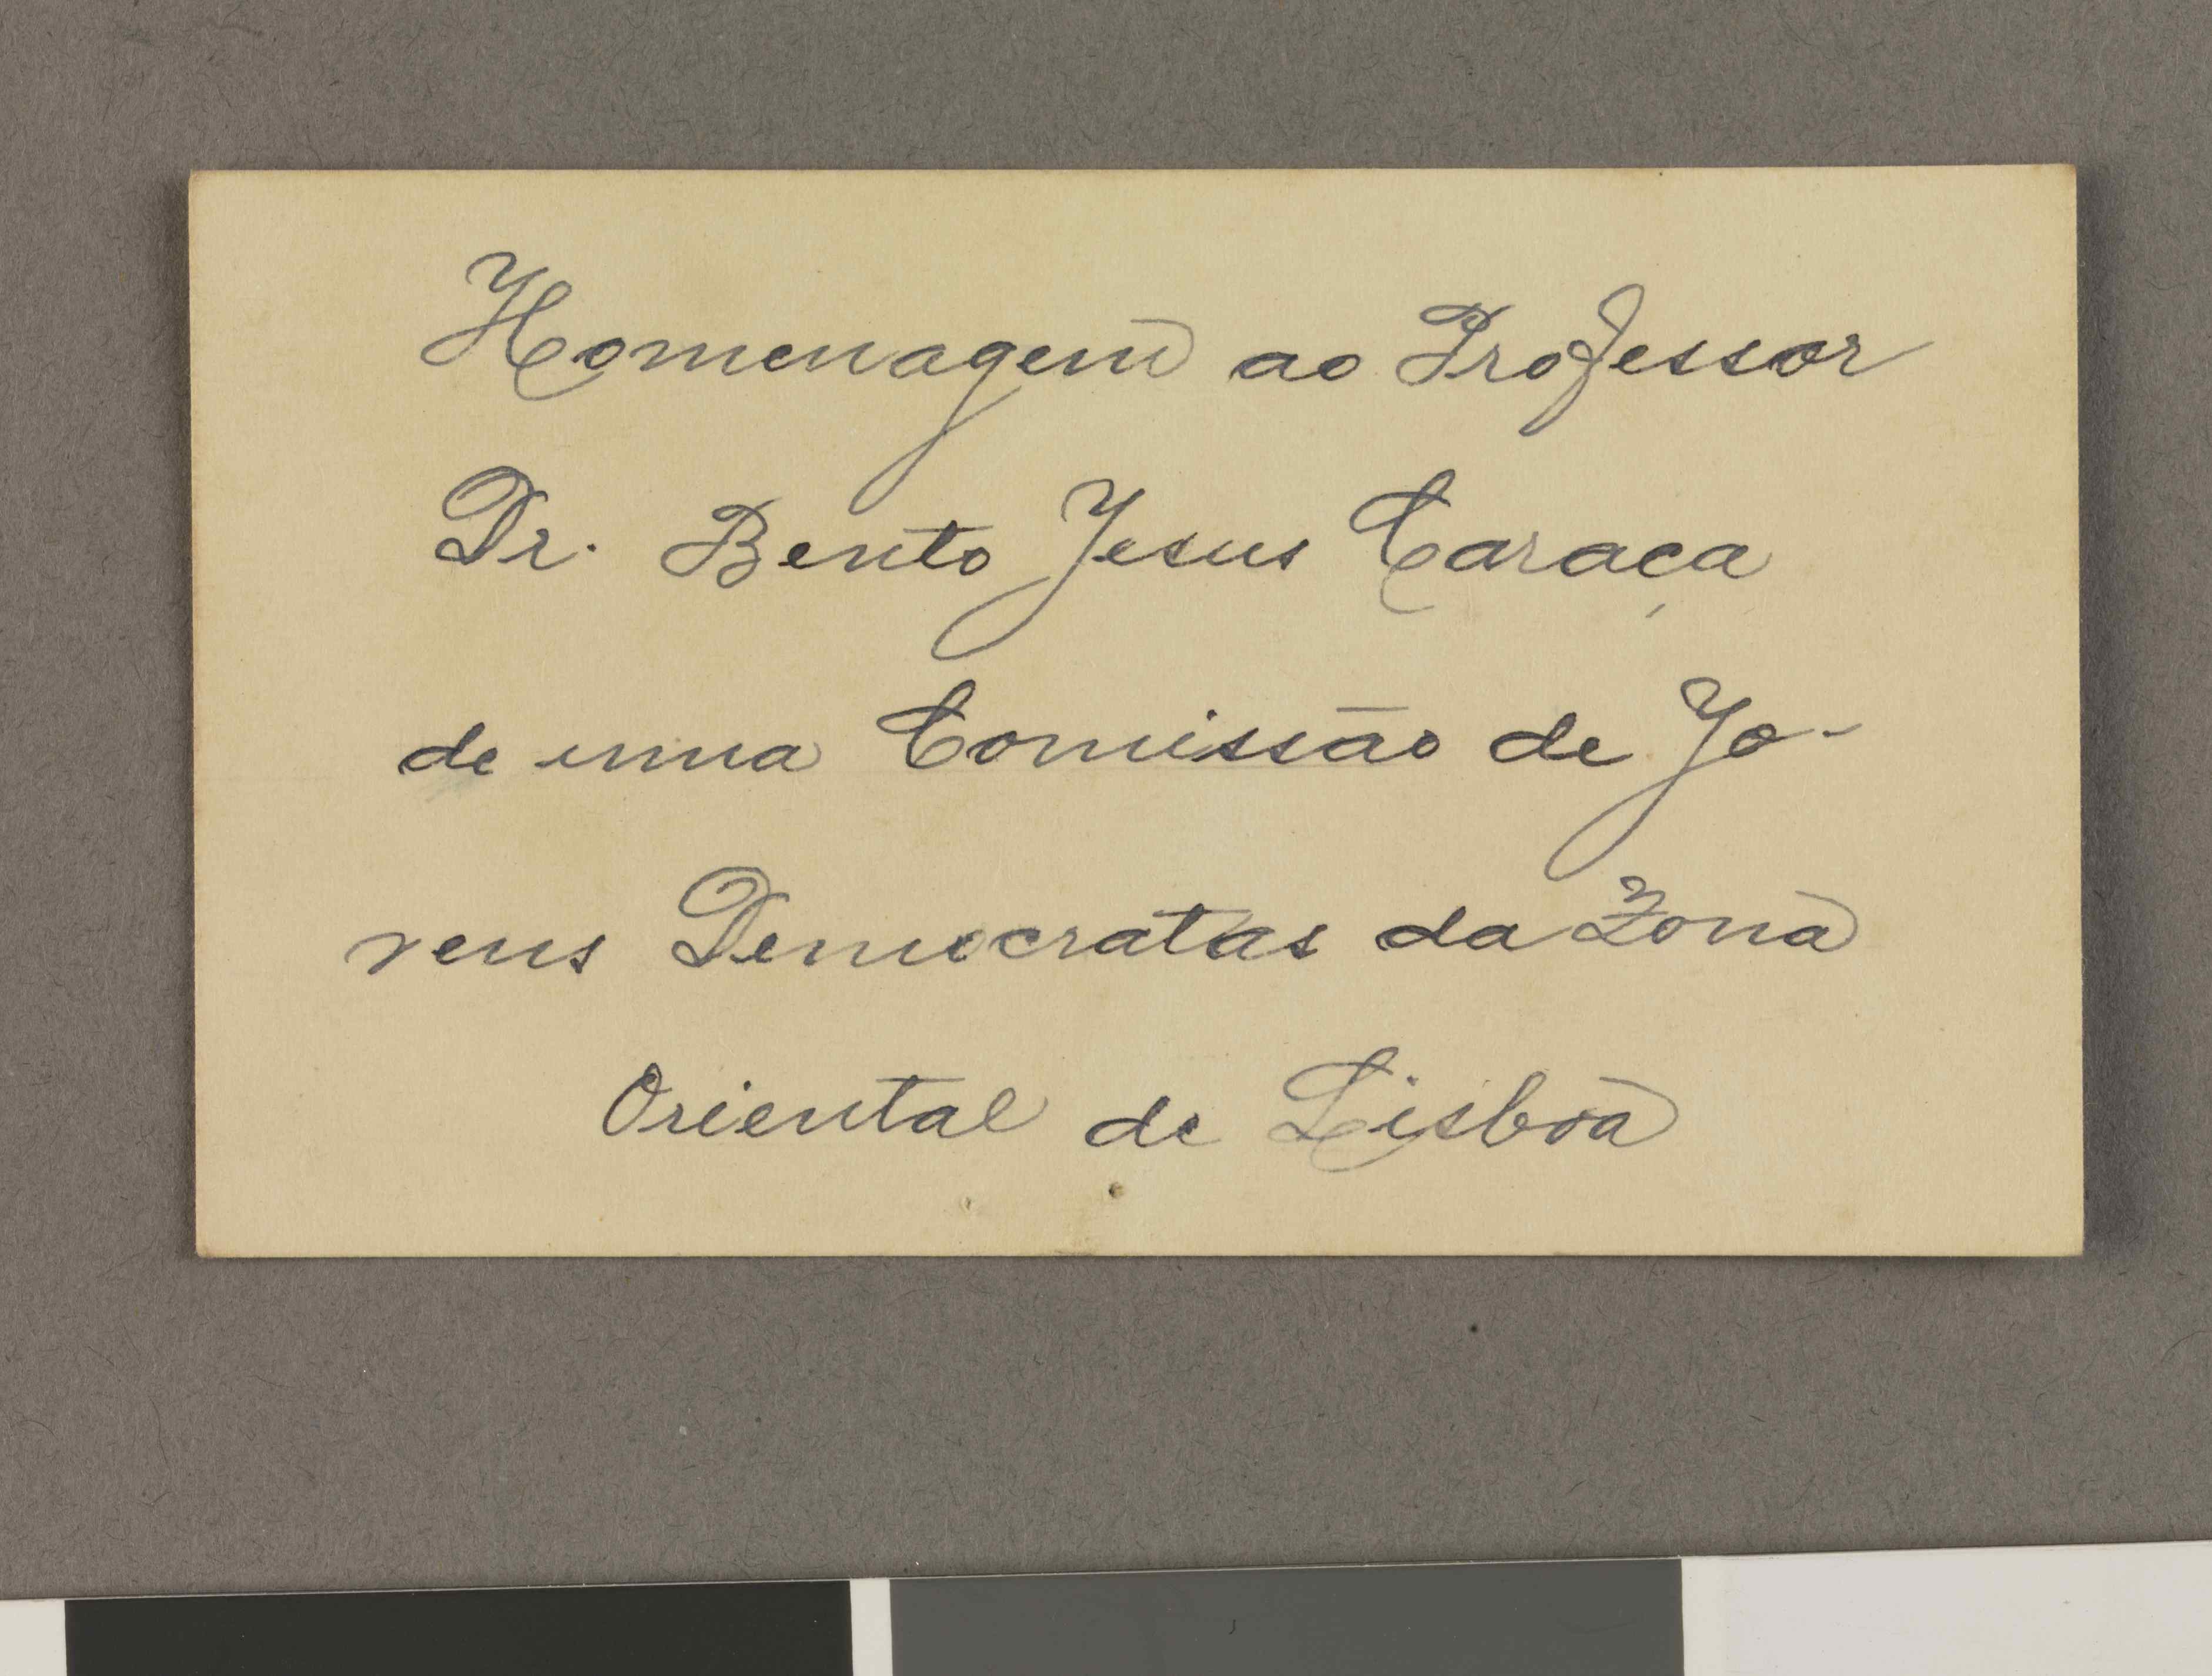 Homenagem ao Professor
Dr. Bento Jesus Caraça
de uma Comissão de Jo-
vens Democratas da Zona
Oriental de Lisboa